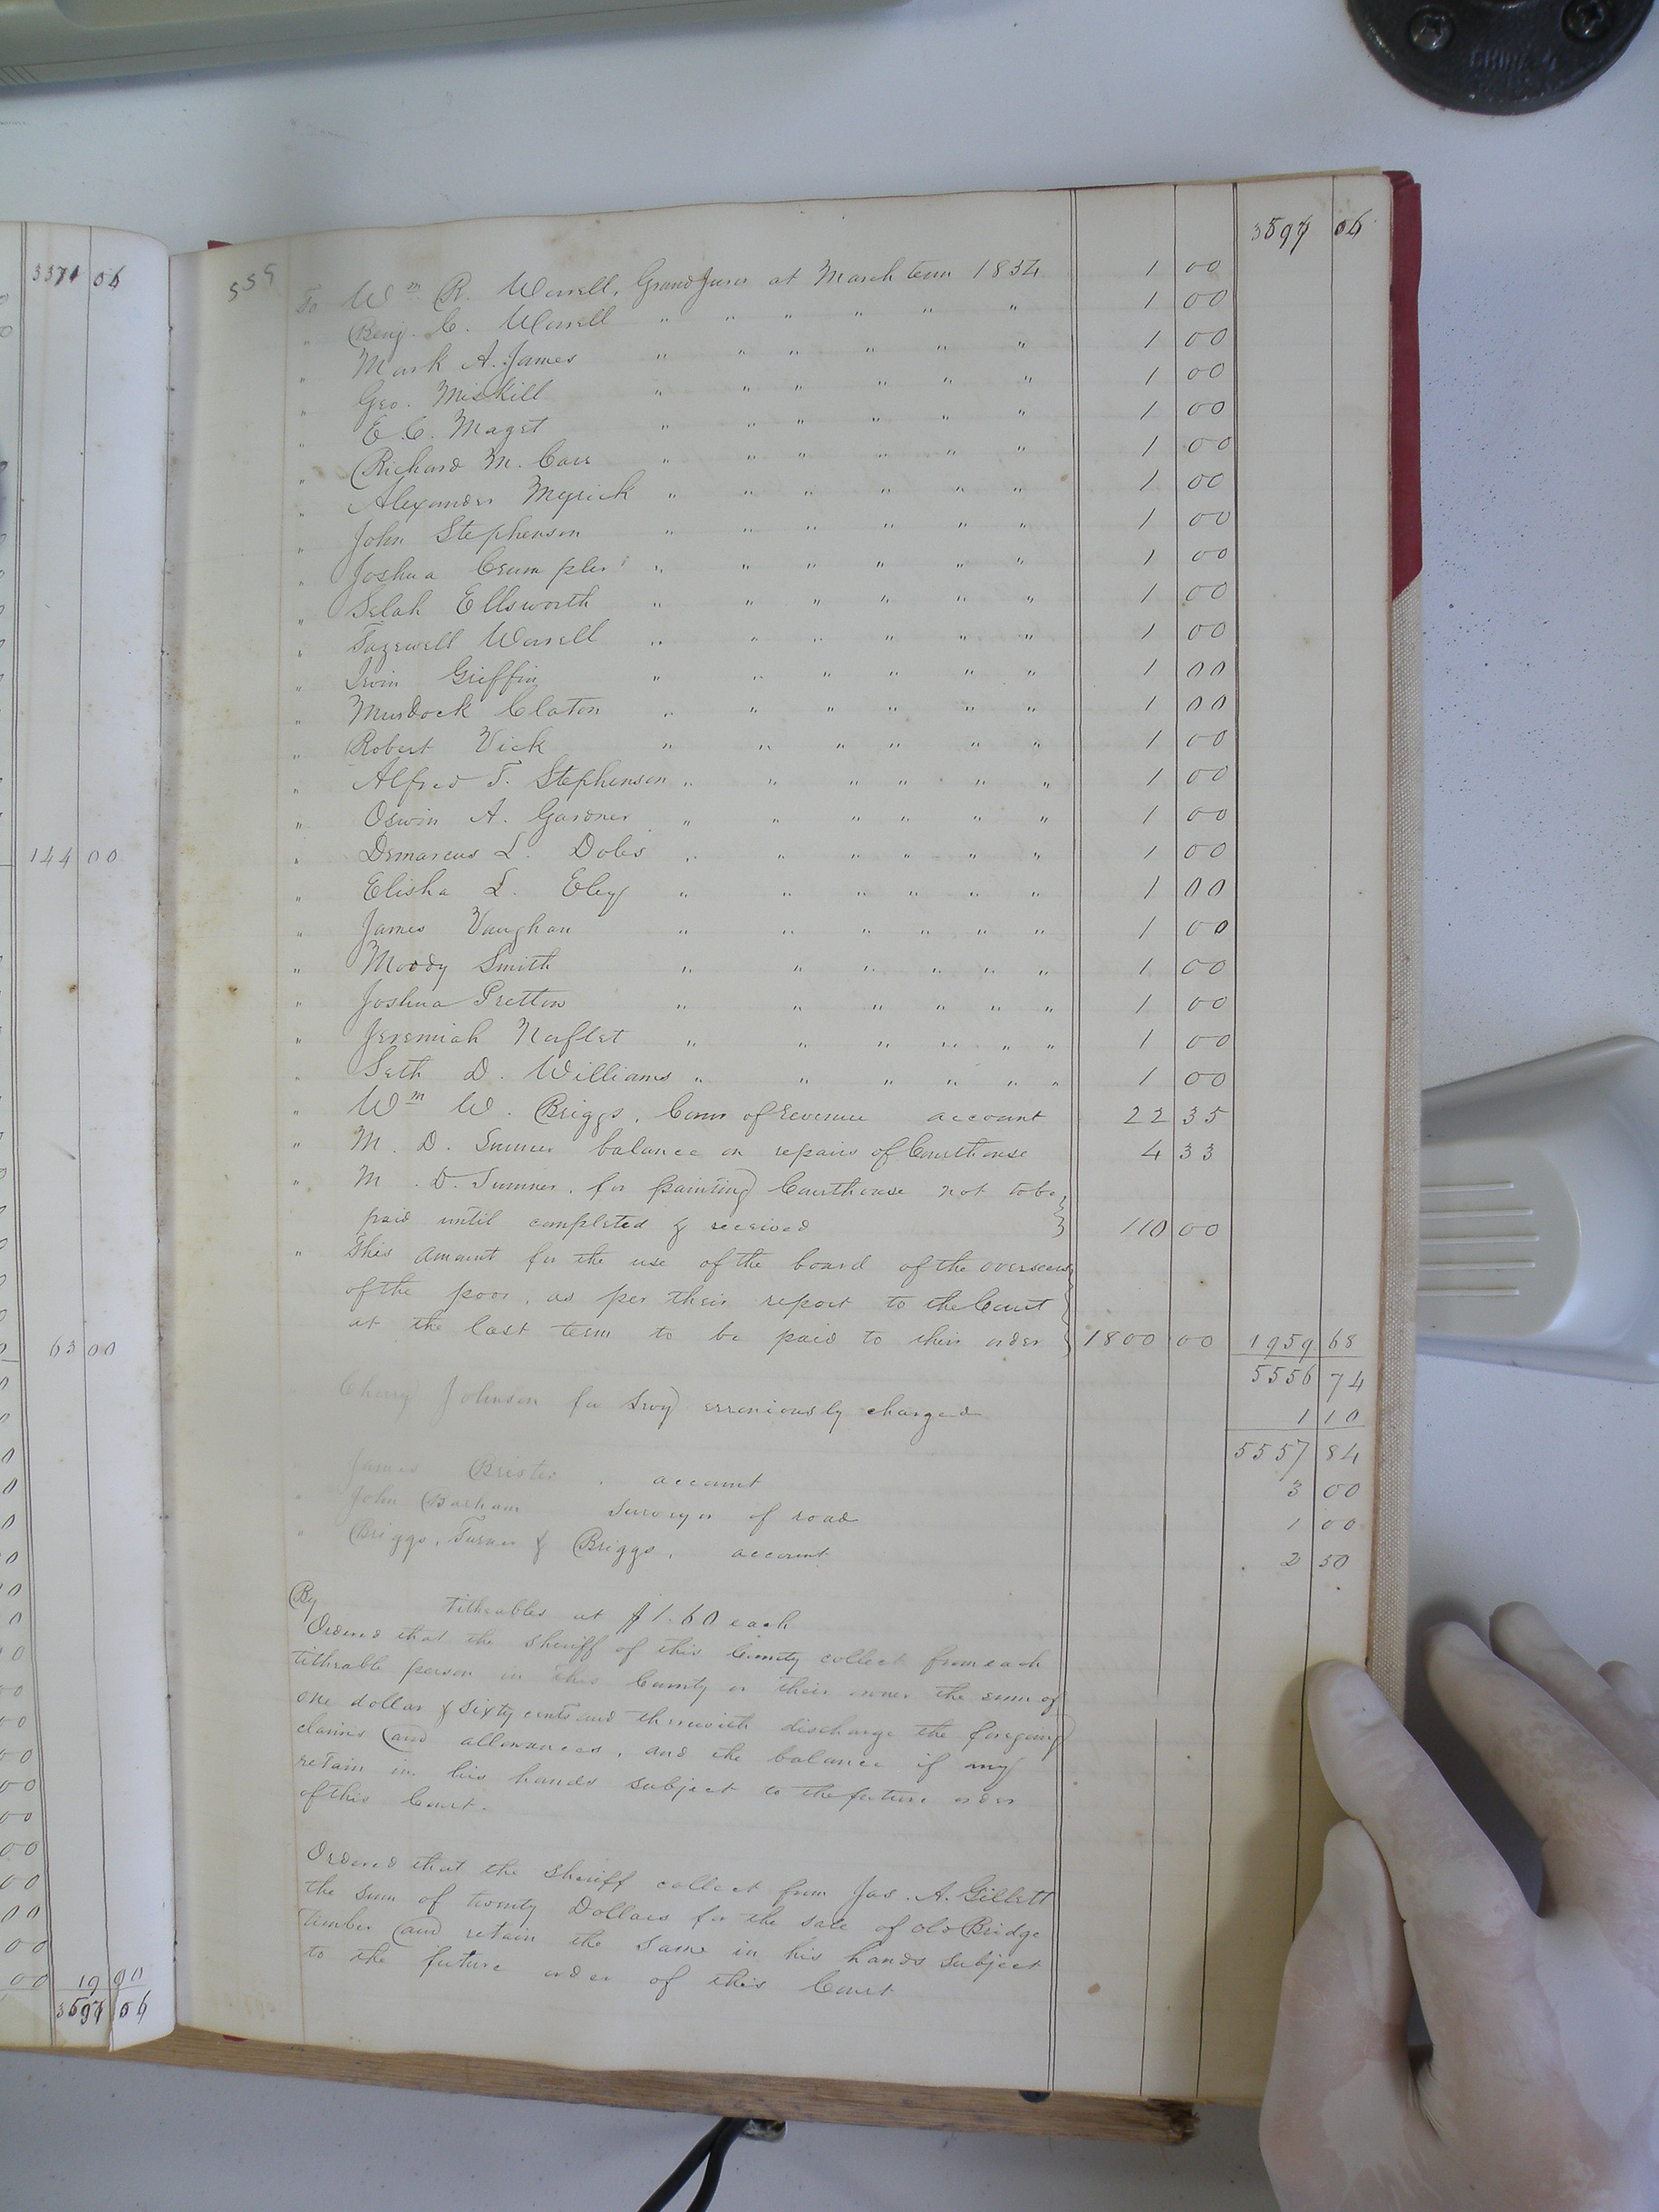 3371 06
144 00
63 00
19 00
3597 06
3597 06
559
To Wm R. Worrell, Grand Juror at March term 1 00
" Benj. C. Worrell " " " " " " 1 00
" Mark A. James " " " " " " 1 00
" Geo. Miskill " " " " " " 1 00
" E. C. Maget " " " " " " 1 00
" Richard M. Carr " " " " " " 1 00
" Alexander Myrick " " " " " " 1 00
" John Stephenson " " " " " " 1 00
" Joshua Crumpler " " " " " " 1 00
" Selah Ellsworth " " " " " " 1 00
" Tazewell Worrell " " " " " " 1 00
" Irvin Griffin " " " " " " 1 00
" Murdock Claton " " " " " " 1 00
" Robert Vick " " " " " " 1 00
" Alfred T. Stephenson " " " " " " 1 00
" Oswin A. Gardner " " " " " " 1 00
" Demarcus L. Doles " " " " " " 1 00
" Elisha L. Eley " " " " " " 1 00
" James Vaughan " " " " " " 1 00
" Moody Smith " " " " " " 1 00
" Joshua Pretlow " " " " " " 1 00
" Jeremiah Norflet " " " " " " 1 00
" Seth D. Williams " " " " " " 1 00
" Wm W. Briggs, Comr of Revenue account 22 35
" M. D. Sumner balance on repairs of Courthouse 4 33
" M. D. Sumner, for painting Courthouse not to be
paid until completed & received 110 00
" This amount for the use of the board of the overseers
of the poor, as per their report to the Court
at the last term to be paid to their order 1800 00 1959 68
5556 74
Cherry Johnson for levy erroniously charged 1 10
5557 84
James Brister account 3 00
" John Barham Surveyor of road 1 00
" Briggs, Turner & Briggs, account 2 50
By titheables at $1.60 each
Ordered that the sheriff of this County collect from each
titheable person in this County or their owner the sum of
one dollar & sixty cents and therewith discharge the foregoing
claims and allowances, and the balance if any
retain in his hands subject to the future order
of this Court.
Ordered that the sheriff collect from Jas. A. Gillett
the sum of twenty Dollars for the sale of old Bridge
timber and retain the same in his hands subject
to the future order of this Court